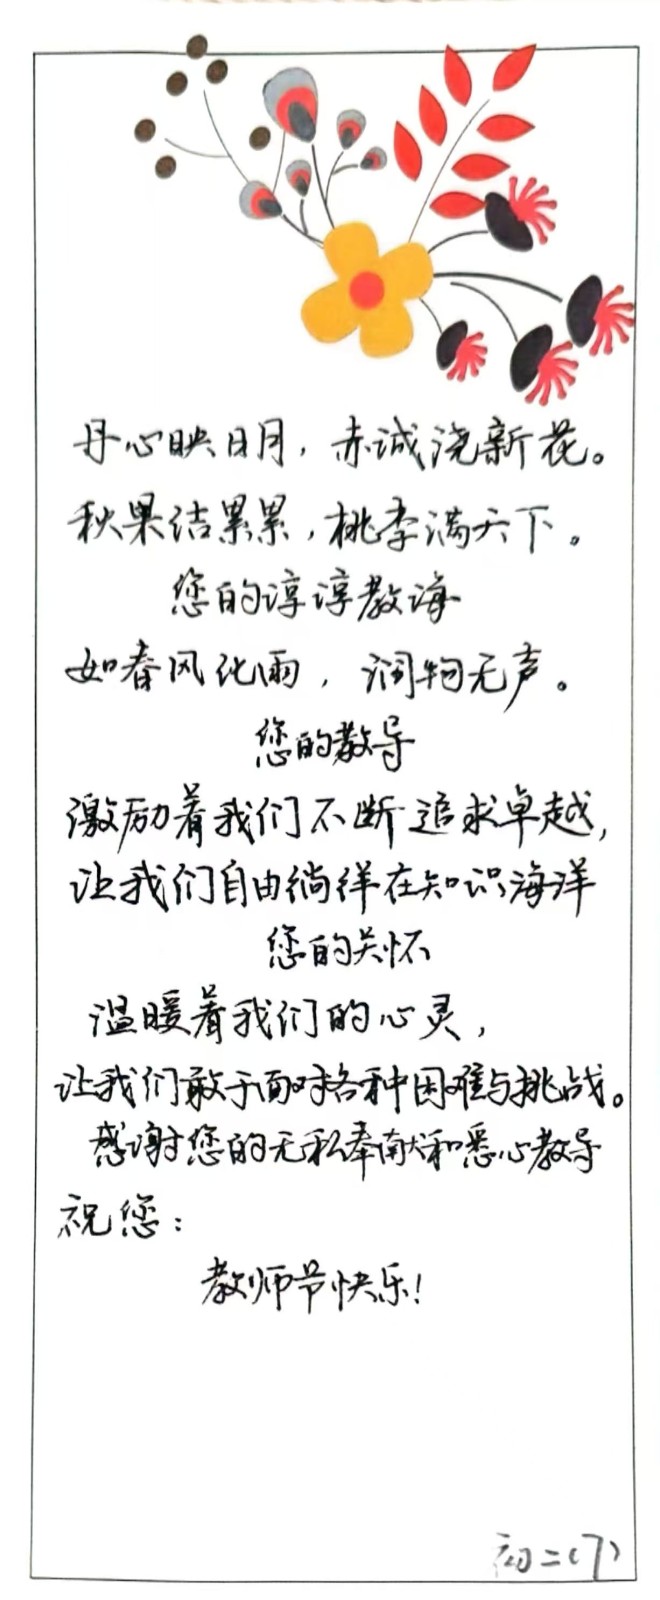 丹心映日月，赤诚浇新花。
秋果结累累，桃李满天下。
您的淳淳教诲
如春风化雨，润物无声。
您的教导
激励着我们不断追求卓越，
让我们自由徜徉在知识海洋
您的关怀
温暖着我们的心灵，
让我们敢于面对各种困难与挑战。
感谢您的无私奉献和悉心教导
祝您：
教师节快乐！
初二(7)